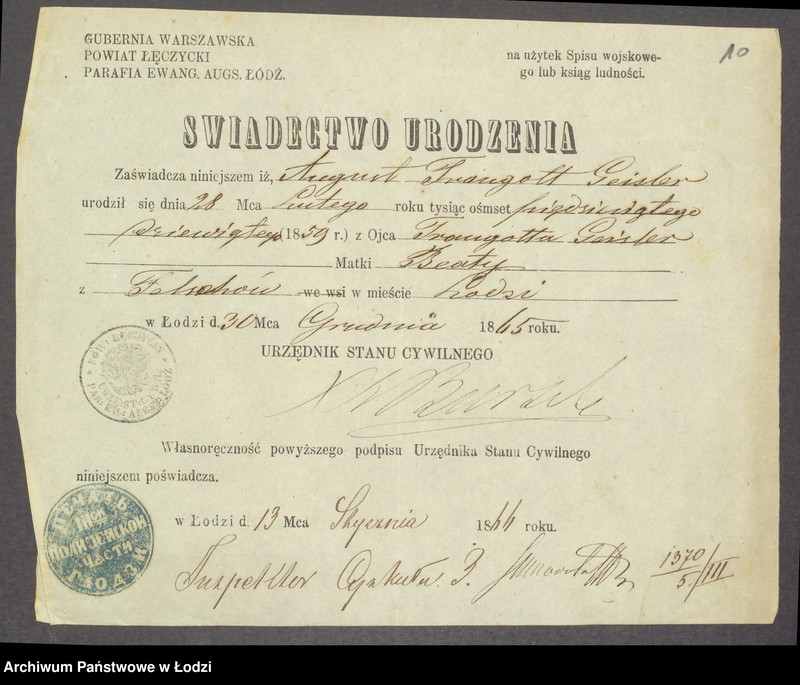 GUBERNIA WARSZAWSKA
POWIAT ŁĘCZYCKI
PARAFIA EWANG. AUGS. ŁÓDŹ.
na użytek Spisu wojskowe-
go lub ksiąg ludności.
10
SWIADECTWO URODZENIA
Zaświadcza niniejszem iż, August Traugott Geisler
urodził się dnia 28 Mca Lutego roku tysiąc ośmset pięćdziesiątego
dziewiątego (1859 r.) z Ojca Traugotta Geisler
Matki Beaty
z we wsi w mieście Łodzi
w Łodzi d. 30 Mca Grudnia 1865 roku.
URZĘDNIK STANU CYWILNEGO
Własnoręczność powyższego podpisu Urzędnika Stanu Cywilnego
niniejszem poświadcza.
w Łodzi d. 13 Mca Stycznia 1866 roku.
Inspektor Cyrkułu 3.
1370/5/III
ПОЛИЦЕЙСКОЙ
ЧАСТИ
Archiwum Państwowe w Łodzi